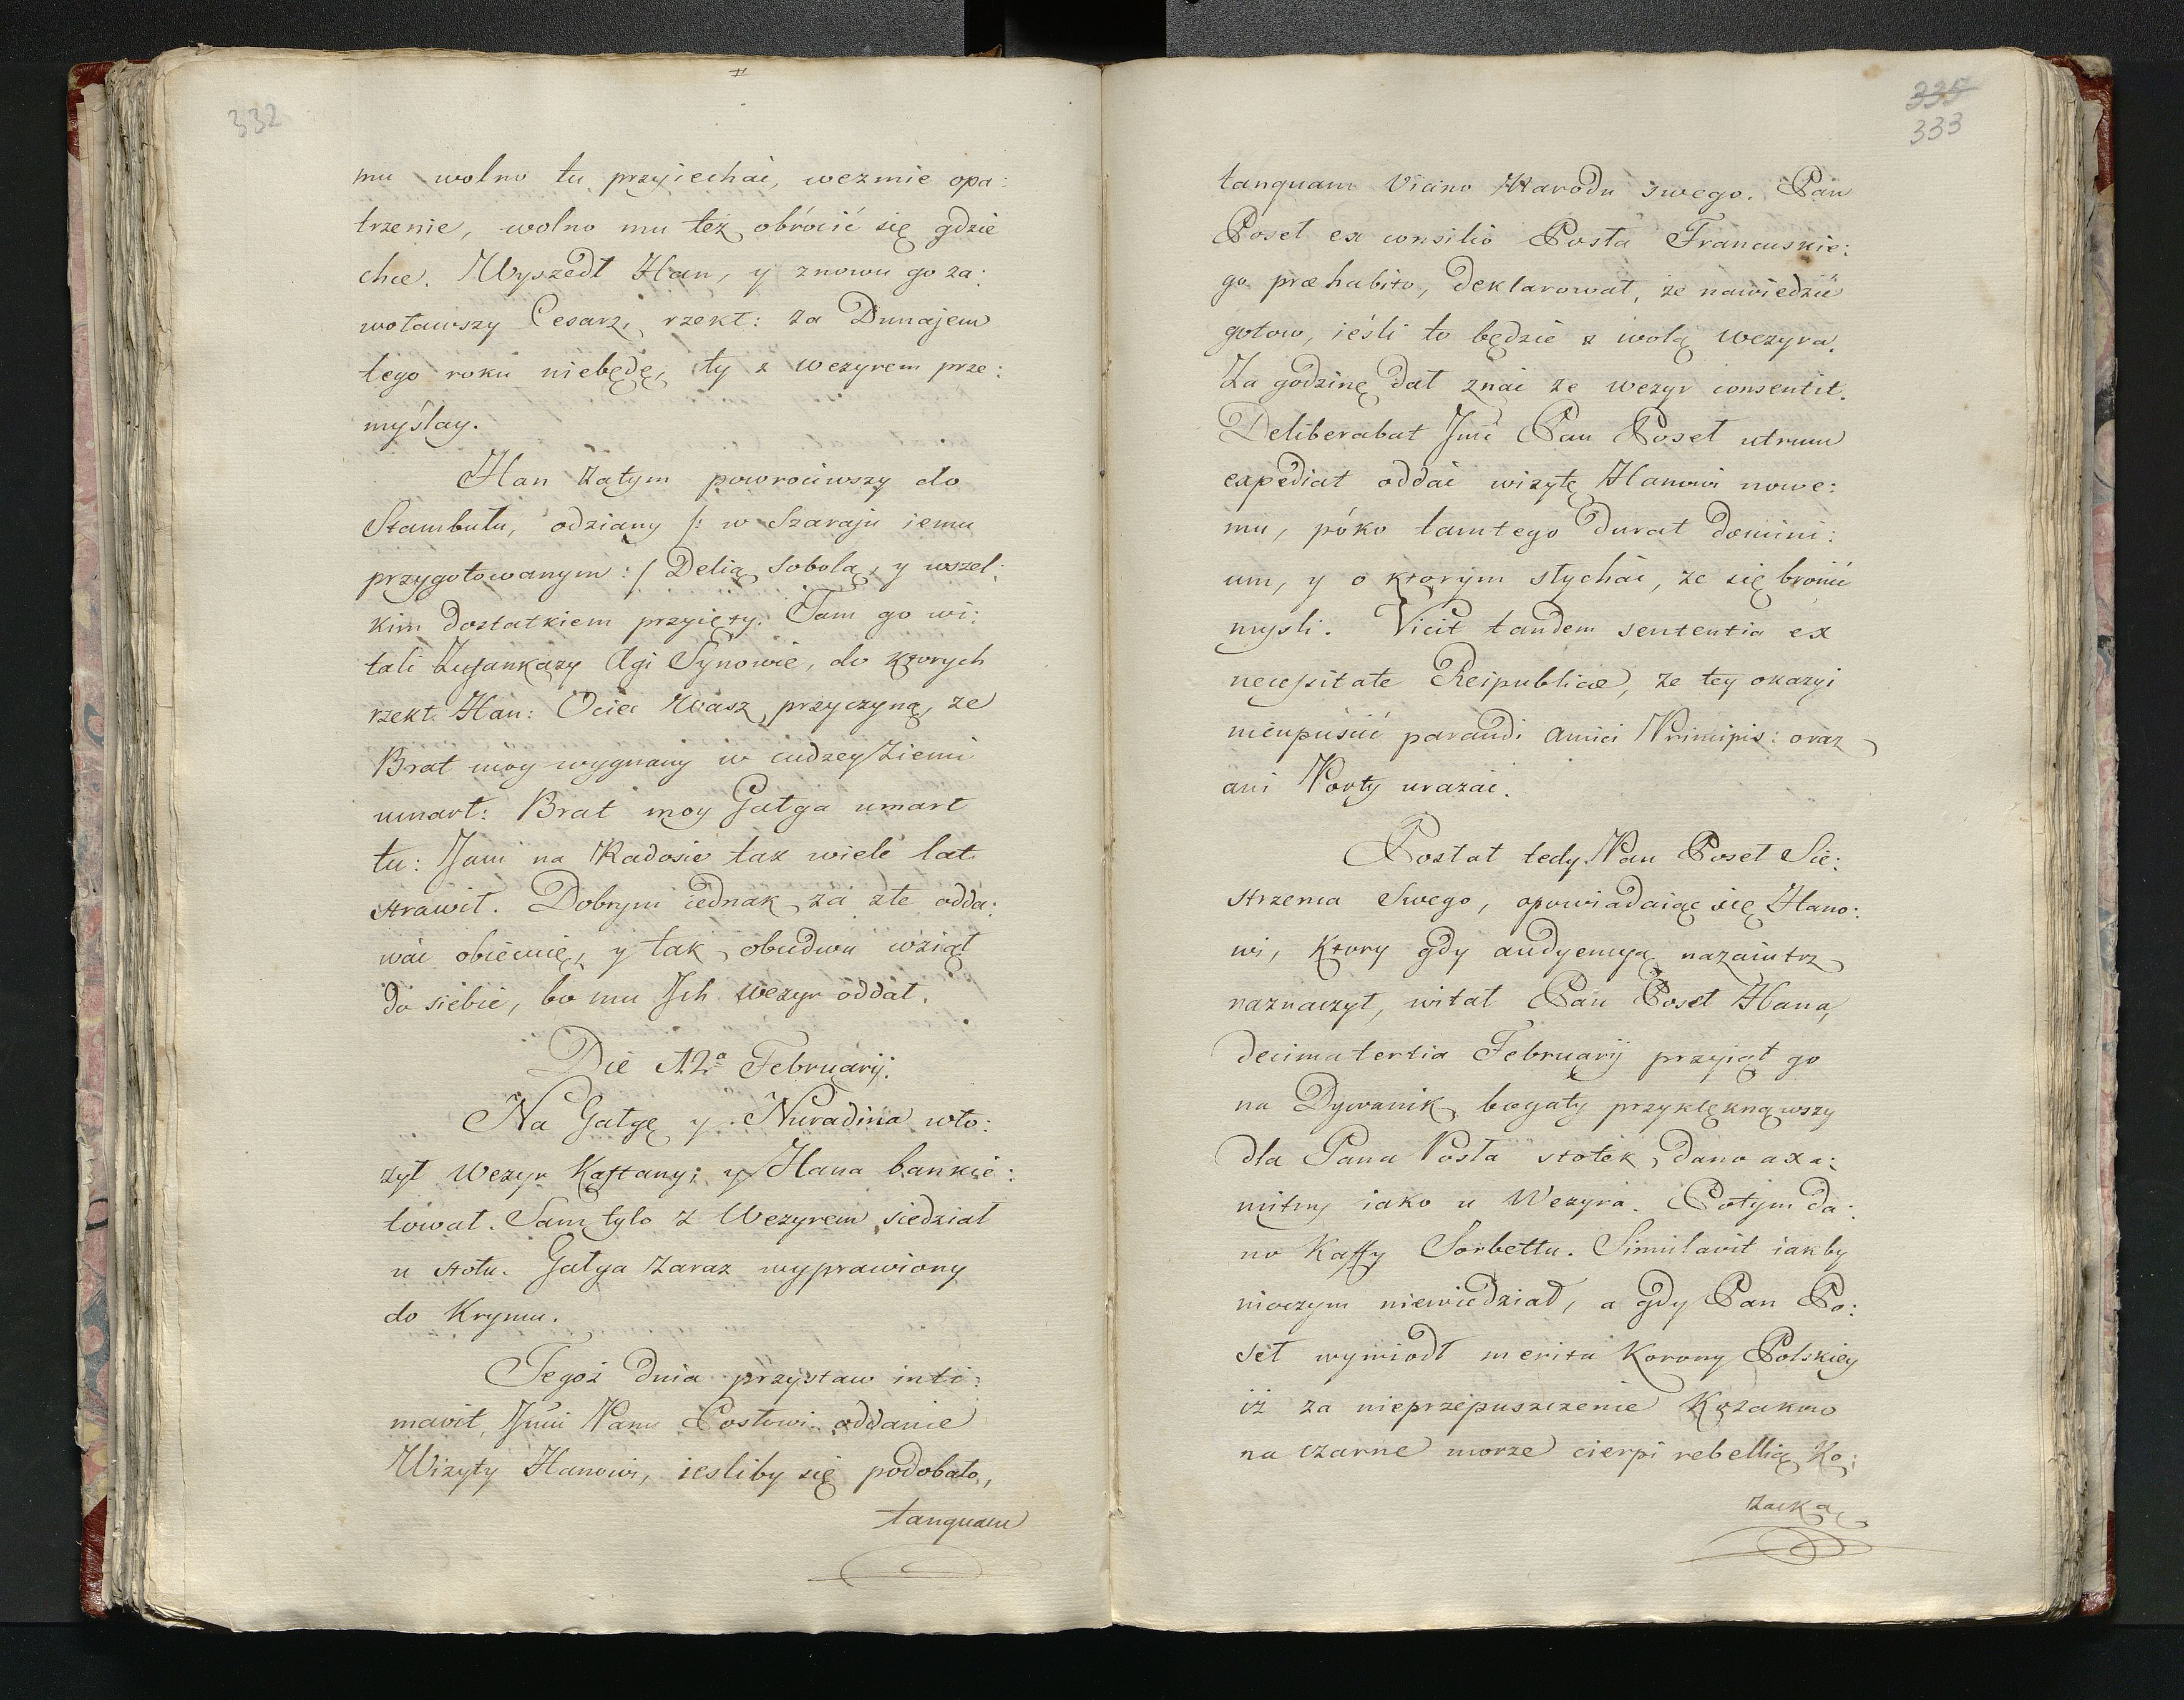 332
mu wolno tu przyiechać, wezmie opa:
trzenie, wolno mu też obrócić się gdzie
chce. Wyszedł Han, y znowu go za:
woławszy Cesarz, rzekł: za Dunajem
tego roku niebędę, ty z wezyrem prze:
myślay.
Han zatym powrociwszy do
Stambułu, odziany /: w Szaraju iemu
przygotowanym :/ Delią Sobolą, y wszel:
kim dostatkiem przyięty. Tam go wi:
tali Agi Synowie, do ktorych
rzekł Han: Ociec Wasz przyczyną, że
Brat moy wygnany w cudzey Ziemi
umarł: Brat moy Gałga umarł
tu: Jam na Radosie tak wiele lat
strawił. Dobrym iednak za złe odda:
wać obiecuię, y tak obudwu wziął
do siebie, bo mu Jch wezyr oddał.
Die 12ª Februarij.
Na Gałgę y Nuradina wło:
żył Wezyr Kaftany; y Hana bankie:
tował. Sam tylo z Wezyrem siedział
u stołu. Gałga zaraz wyprawiony
do Krymu.
Tegoż dnia przystaw inti:
mavit, Jmci Panu Posłowi oddanie
Wizyty Hanowi, iesliby się podobało,
tanquam
335
333
tanquam Vicino Narodu swego. Pan
Poseł ex consilio Posła Francuskie:
go præhabito, deklarował, że nawiedzić
gotow, ieśli to będzie z wolą wezyra.
Za godzinę dał znać że wezyr consentit.
Deliberabat Jmć Pan Poseł utrum
expediat oddać wizytę Hanowi nowe:
mu, póko tamtego durat domini:
um, y o ktorym słychać, że się bronić
mysli. Vicit tandem sententia ex
necessitate Reipublicæ, że tey okazyi
nieupuścić parandi amici Principis: oraz
ani Porty urażać.
Posłał tedy Pan Poseł Sie:
strzenca Swego, opowiadaiąc się Hano:
wi, Ktory gdy audyencyą nazaiutrz
naznaczył, witał Pan Poseł Hana,
decima tertia Februarij przyiął go
na Dywanik bogaty przyklęknąwszy
dla Pana Posła stołek dano axa:
mitny iako u Wezyra. Potym da:
no Kaffy Sorbettu. Simulavit iakby
nioczym niewiedział, a gdy Pan Po:
seł wywiodł merita Korony Polskiey
iż za nieprzepuszczenie Kozakow
na czarne morze cierpi rebellią Ko:
zacką